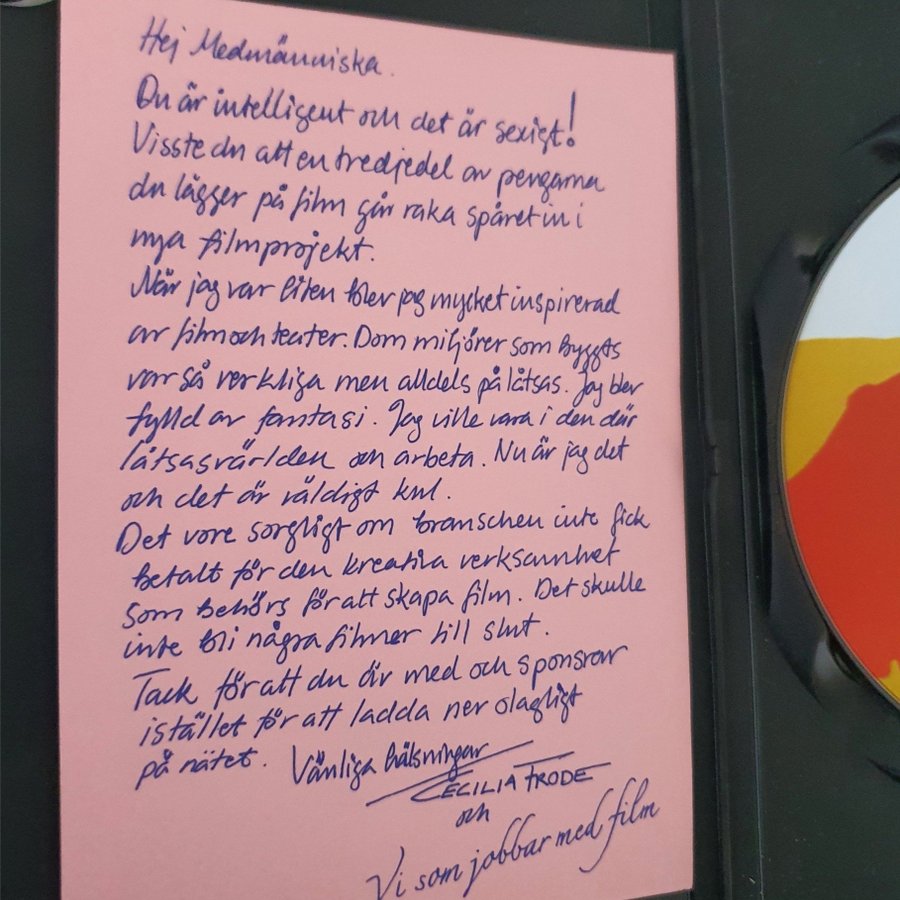 Hej Medmänniska.
Du är intelligent och det är sexigt!
Visste du att en tredjedel av pengarna
du lägger på film går raka spåret in i
nya filmprojekt.
När jag var liten blev jag mycket inspirerad
av film och teater. Dom miljöer som byggts
var så verkliga men alldels på låtsas. Jag blev
fylld av fantasi. Jag ville vara i den där
låtsasvärlden och arbeta. Nu är jag det
och det är väldigt kul.
Det vore sorgligt om branschen inte fick
betalt för den kreativa verksamhet
som behövs för att skapa film. Det skulle
inte bli några filmer till slut.
Tack för att du är med och sponsrar
istället för att ladda ner olagligt
på nätet. Vänliga hälsningar
CECILIA FRODE
och
Vi som jobbar med film